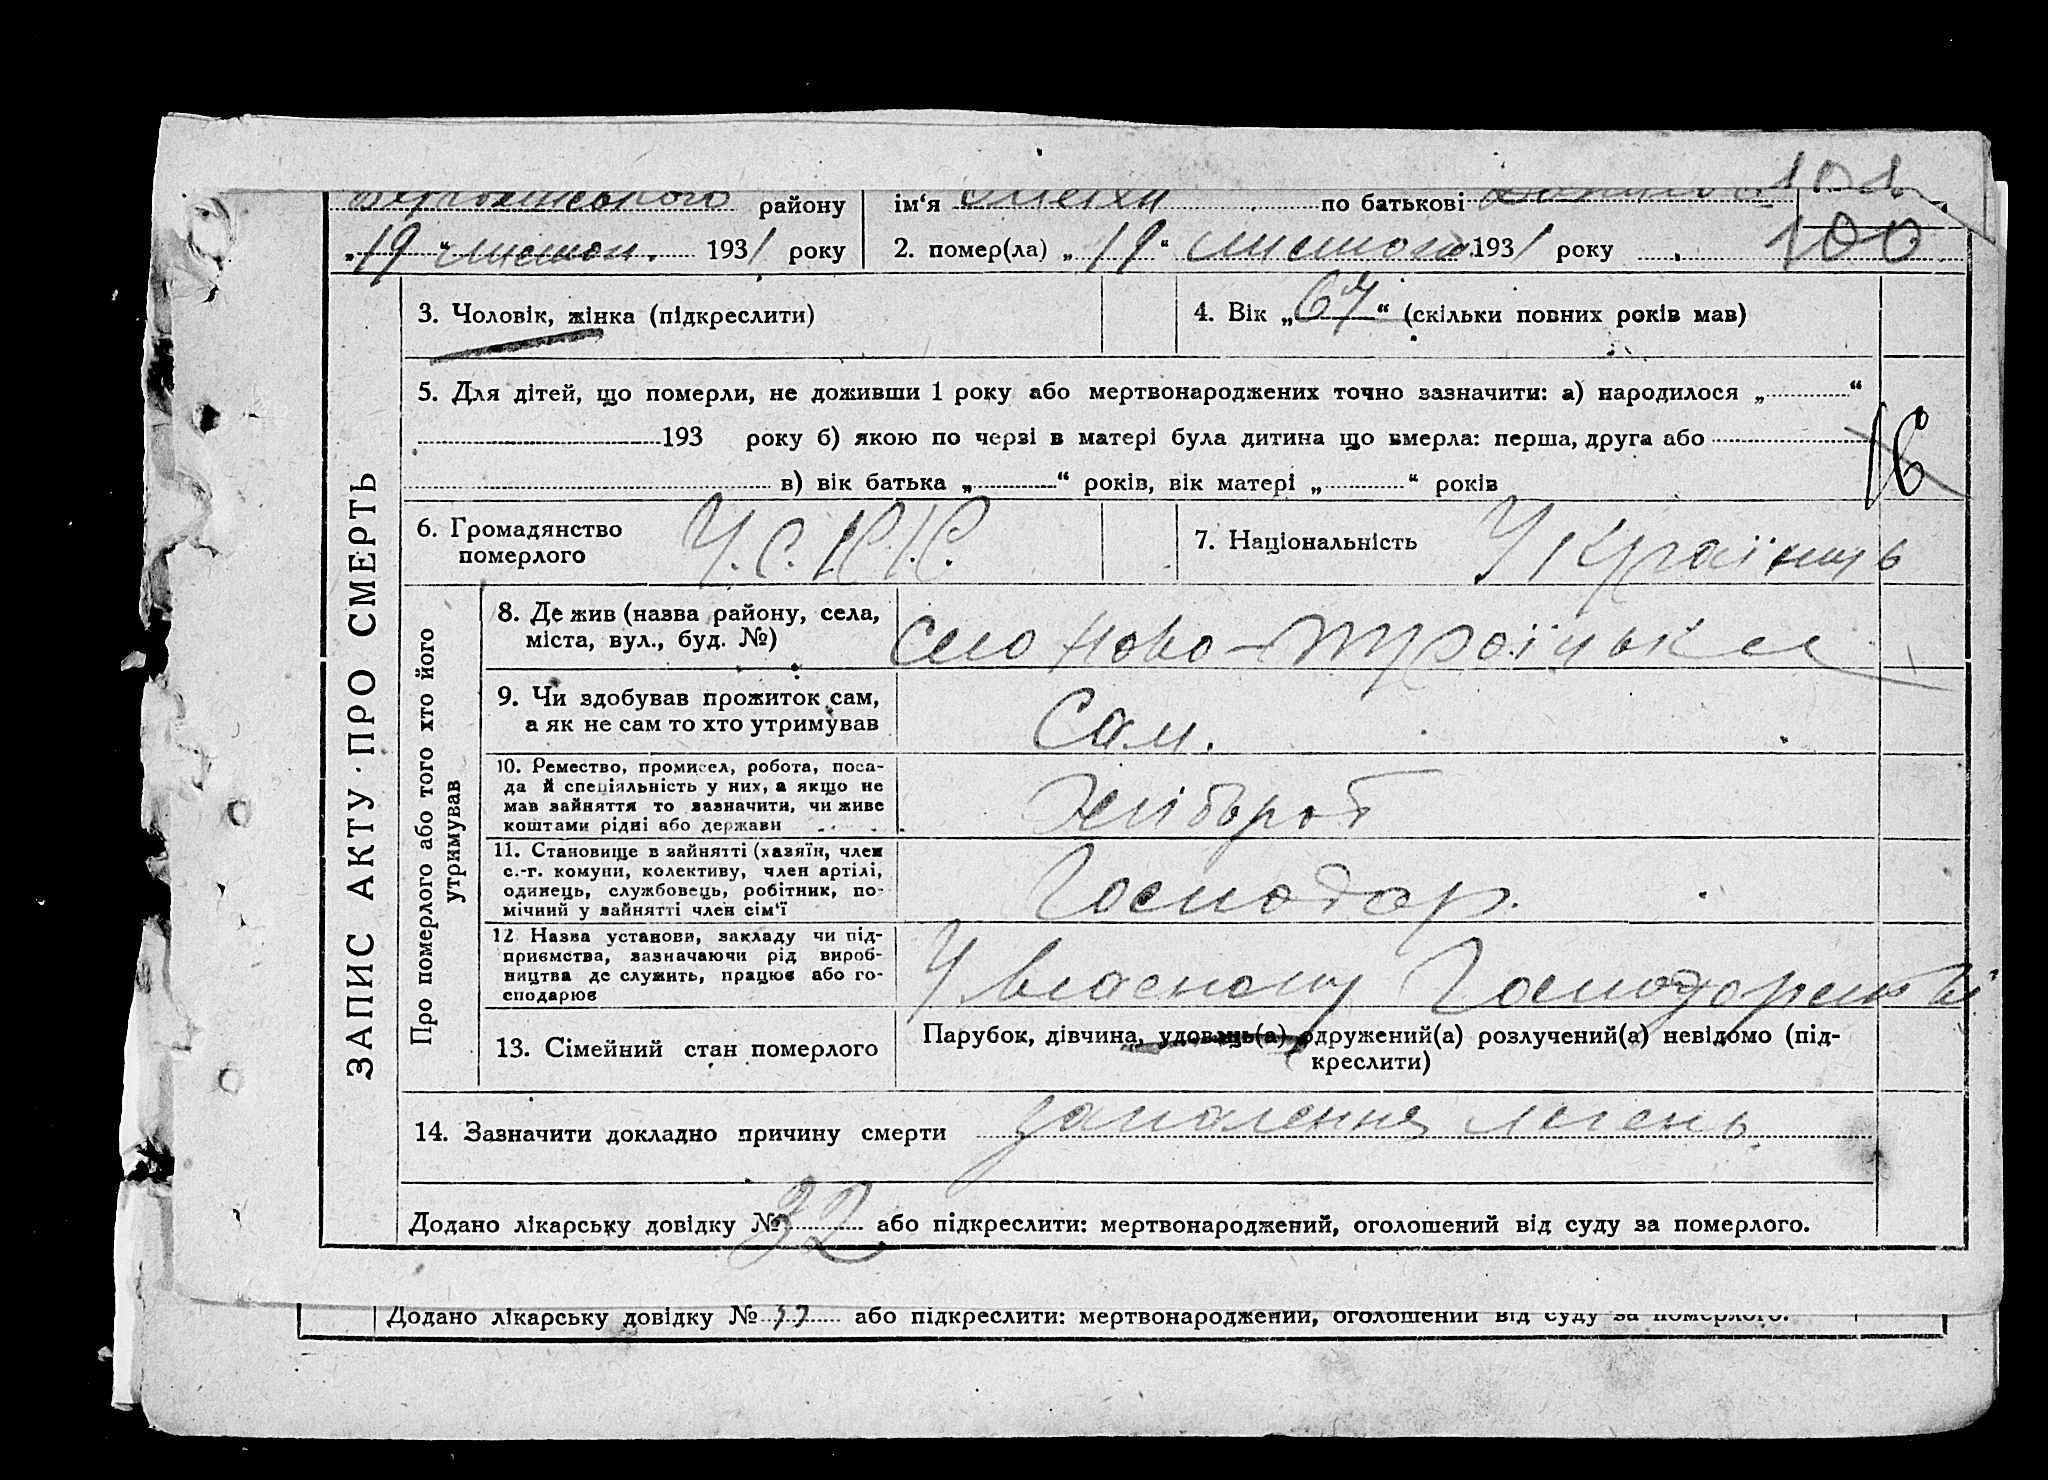 101
району ім‘я по батькові
„19“ листоп. 1931 року 2. помер(ла) „19“ листопа 1931 року 100
ЗАПИС АКТУ ПРО СМЕРТЬ
3. Чоловік, жінка (підкреслити) 4. Вік „67“ (скільки повних років мав)
5. Для дітей, що померли, не доживши 1 року або мертвонароджених точно зазначити: а) народилося „ “
193 року б) якою по черзі в матері була дитина що вмерла: перша, друга або
в) вік батька „ “ років, вік матері „ “ років
6. Громадянство померлого У.С.Р.Р. 7. Національність Українць
Про померлого або того хто його утримував
8. Де жив (назва району, села,
міста, вул., буд. №) село Ново-Троїцьке
9. Чи здобував прожиток сам,
а як не сам то хто утримував Сам.
10. Ремество, промисел, робота, поса-
да й спеціяльність у них, а якщо не
мав зайняття то зазначити, чи живе
коштами рідні або держави Хлібороб
11. Становище в зайнятті (хазяїн, член
с.-г. комуни, колективу, член артілі,
одинець, службовець, робітник, по-
мічний у зайнятті член сім‘ї Господар.
12 Назва установи, закладу чи під-
приємства, зазначаючи рід вироб-
ництва де служить, працює або го-
сподарює У власному Господарстві
13. Сімейний стан померлого Парубок, дівчина, удовець(а) одружений(а) розлучений(а) невідомо (під-
креслити)
14. Зазначити докладно причину смерти запалення легень.
Додано лікарську довідку № 32 або підкреслити: мертвонароджений, оголошений від суду за померлого.
Додано лікарську довідку № 33 або підкреслити: мертвонароджений, оголошений від суду за померлого.